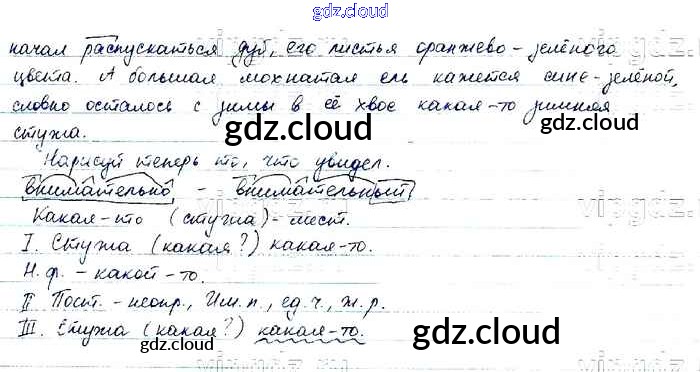 gdz.cloud
начал распускаться дуб, его листья оранжево-зелёного
цвета. А большая мохнатая ель кажется сине-зелёной,
словно осталось с зимы в её хвое какая-то зимняя
стужа.
gdz.cloud gdz.cloud
Нарисуй теперь то, что увидел.
внимательно - внимательный
Какая-то (стужа) - мест.
I. Стужа (какая?) какая-то.
Н.ф. - какой-то.
II Пост. - неопр., Им.п., ед.ч., ж.р.
III. Стужа (какая?) какая-то.
gdz.cloud gdz.cloud